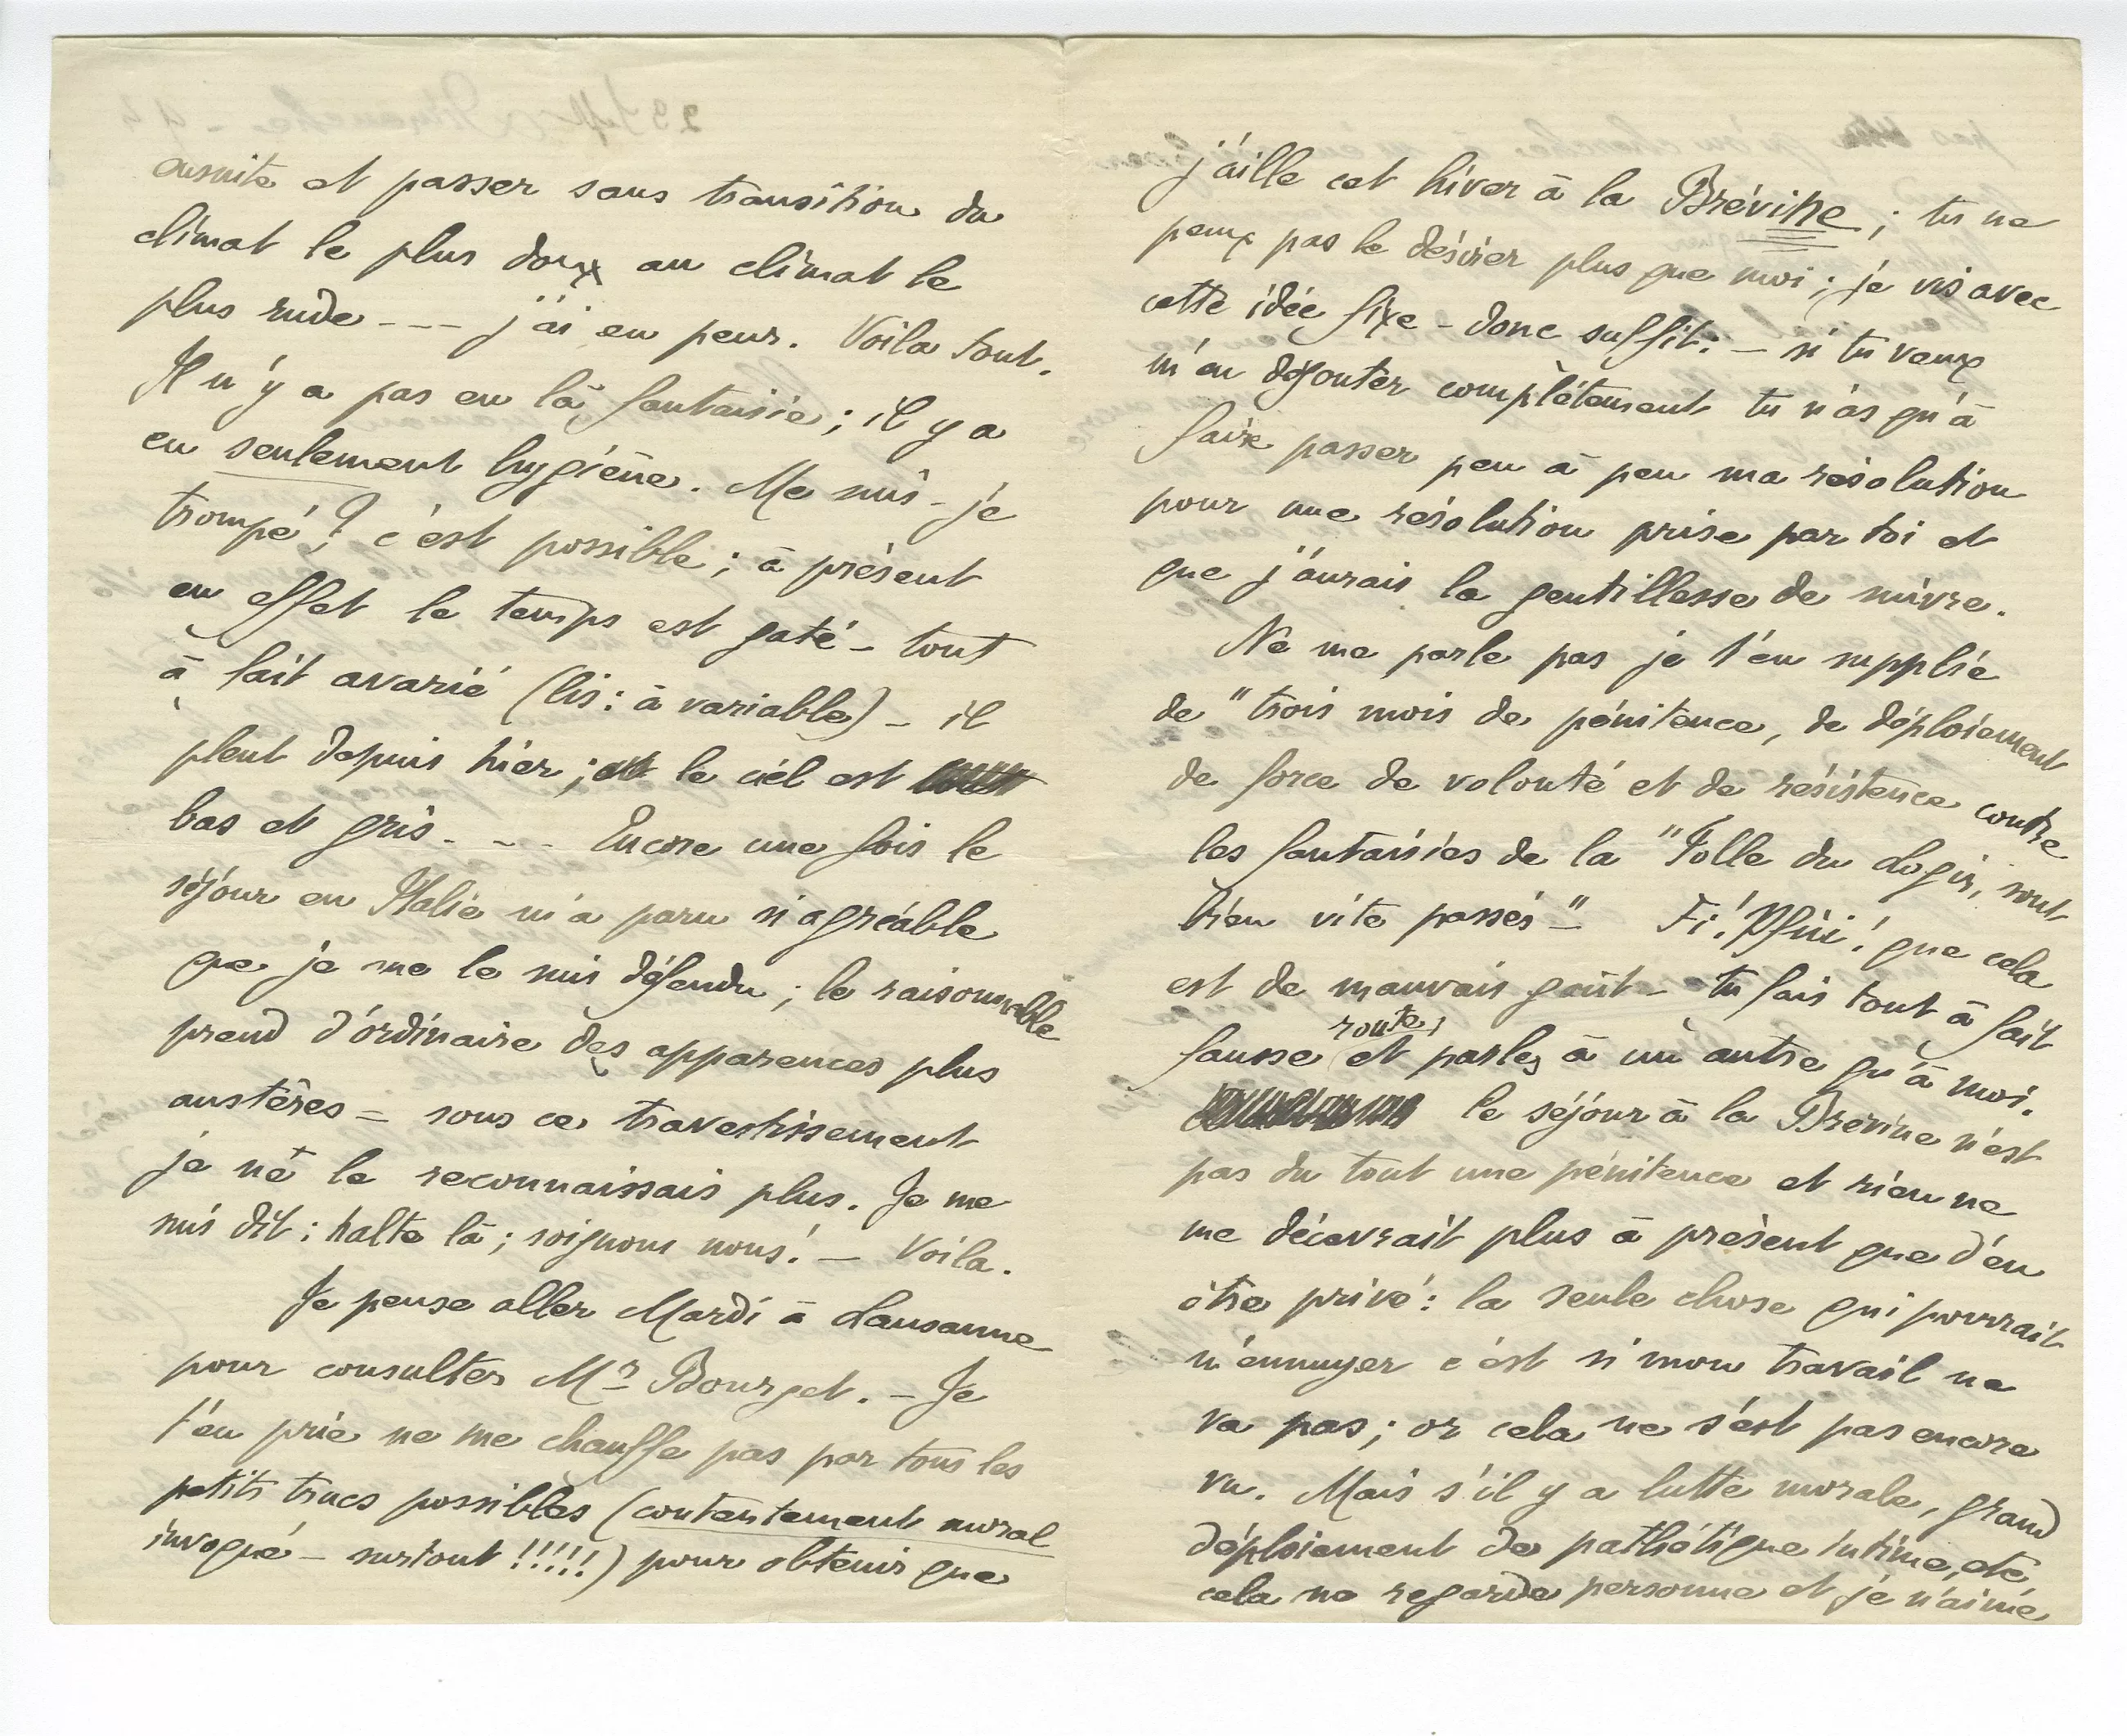 ensuite et passer sans transition du
climat le plus doux au climat le
plus rude --- j'ai eu peur. Voila tout.
Il n'y a pas eu là fantaisie ; il y a
eu seulement hygiène. Me suis-je
trompé ? c'est possible ; à présent
en effet le temps est gaté – tout
à fait avarié (lis : à variable) – il
pleut depuis hier ; le ciel est
bas et gris. - - Encore une fois le
séjour en Italie m'a paru si agréable
que je me le suis défendu ; le raisonnable
prend d'ordinaire des apparences plus
austères – sous ce travestissement
je ne le reconnaissais plus. Je me
suis dit : halte là ; soignons nous ! – Voila.
Je pense aller Mardi à Lausanne
pour consulter Mr Bourget. – Je
t'en prie ne me chauffe pas par tous les
petits trucs possibles (contentement moral
invoqué – surtout !!!!!) pour obtenir que
j'aille cet hiver à la Brévine ; tu ne
peux pas le désirer plus que moi ; je vis avec
cette idée fixe – donc suffit : – si tu veux
m'en dégouter complètement tu n'as qu'à
faire passer peu à peu ma résolution
pour une résolution prise par toi et
que j'aurais la gentillesse de suivre.
Ne me parle pas je t'en supplie
de "trois mois de pénitence, de déploiement
de force de volonté et de résistence contre
les fantaisies de la "Folle du Logis, sont
bien vite passés" – Fi ! Pfui ! que cela
est de mauvais goût – tu fais tout à fait
fausse route, et parles à un autre qu'à moi.
le séjour à la Brévine n'est
pas du tout une pénitence et rien ne
me décevrait plus à présent que d'en
être privé : la seule chose qui pourrait
m'ennuyer c'est si mon travail ne
va pas ; or cela ne s'est pas encore
vu. Mais s'il y a lutte morale, grand
déploiement de pathétique intime, etc
cela ne regarde personne et je n'aime